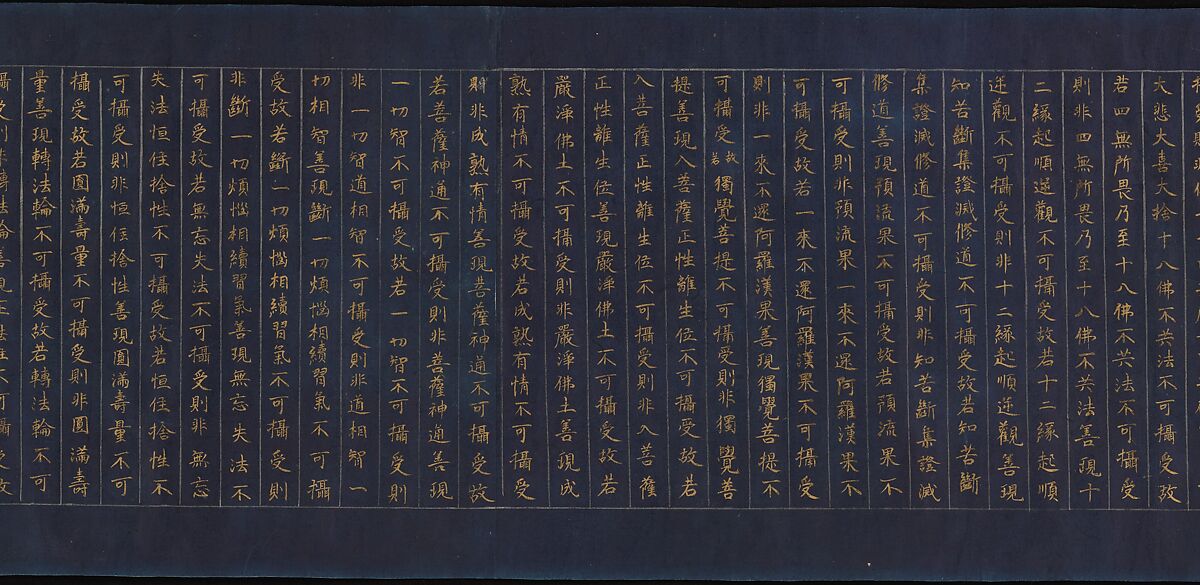 大悲大喜大捨十八佛不共法不可攝受故
若四無所畏乃至十八佛不共法不可攝受
則非四無所畏乃至十八佛不共法善現十
二緣起順逆觀不可攝受故若十二緣起順
逆觀不可攝受則非十二緣起順逆觀善現
知苦斷集證滅修道不可攝受故若知苦斷
集證滅修道不可攝受則非知苦斷集證滅
修道善現預流果不可攝受故若預流果不
可攝受則非預流果一來不還阿羅漢果不
可攝受故若一來不還阿羅漢果不可攝受
則非一來不還阿羅漢果善現獨覺菩提不
可攝受故若獨覺菩提不可攝受則非獨覺菩
提善現入菩薩正性離生位不可攝受故若
入菩薩正性離生位不可攝受則非入菩薩
正性離生位善現嚴淨佛土不可攝受故若
嚴淨佛土不可攝受則非嚴淨佛土善現成
熟有情不可攝受故若成熟有情不可攝受
則非成熟有情善現菩薩神通不可攝受故
若菩薩神通不可攝受則非菩薩神通善現
一切智不可攝受故若一切智不可攝受則
非一切智道相智不可攝受則非道相智一
切相智善現斷一切煩惱相續習氣不可攝
受故若斷一切煩惱相續習氣不可攝受則
非斷一切煩惱相續習氣善現無忘失法不
可攝受故若無忘失法不可攝受則非無忘
失法恒住捨性不可攝受故若恒住捨性不
可攝受則非恒住捨性善現圓滿壽量不可
攝受故若圓滿壽量不可攝受則非圓滿壽
量善現轉法輪不可攝受故若轉法輪不可